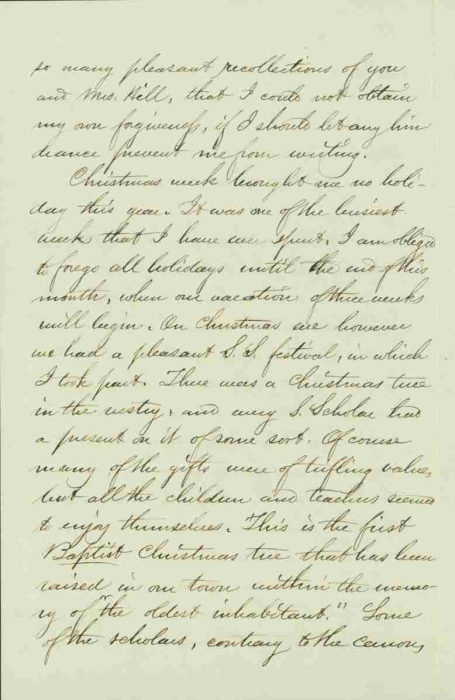 so many pleasant recollections of you
and Mrs. Hill, that I could not obtain
my own forgiveness, if I should let any hin
drance prevent me from writing.
Christmas week brought me no holi-
day this year. It was one of the busiest
weeks that I have ever spent. I am obliged
to forego all holidays until the end of this
month, when our vacation of three weeks
will begin. On Christmas eve however
we had a pleasant S. S. festival, in which
I took part. There was a Christmas tree
in the vestry, and every S. Scholar had
a present on it of some sort. Of course
many of the gifts were of trifling value,
but all the children and teachers seemed
to enjoy themselves. This is the first
Baptist Christmas tree that has been
raised in our town within the memo-
ry of "the oldest inhabitant." Some
of the scholars, contrary to the canons,